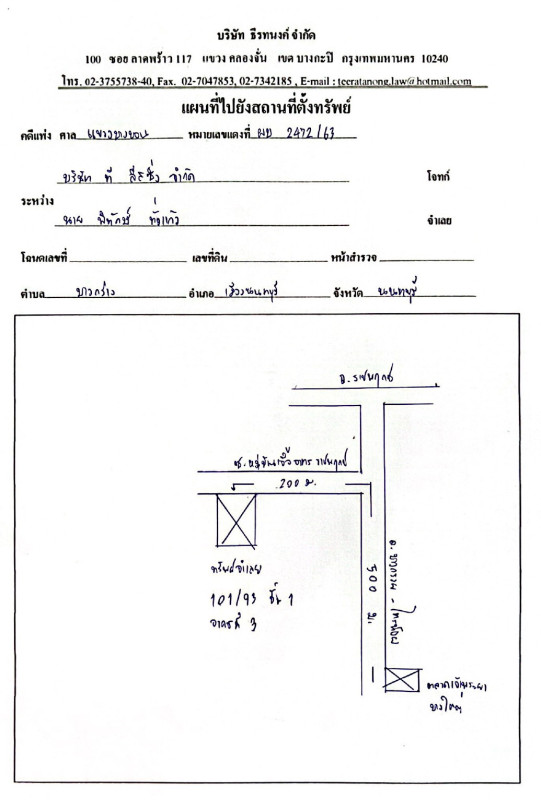 บริษัท ธีรทนงค์ จำกัด
100 ซอย ลาดพร้าว 117 แขวง คลองจั่น เขต บางกะปิ กรุงเทพมหานคร 10240
โทร. 02-3755738-40, Fax. 02-7047853, 02-7342185 , E-mail : teeratanong.law@hotmail.com
แผนที่ไปยังสถานที่ตั้งทรัพย์
คดีแพ่ง ศาล แขวงบางบอน หมายเลขแดงที่ ผบ 2472/63
บริษัท ที ลีสซิ่ง จำกัด โจทก์
ระหว่าง
นาย พิทักษ์ จำเลย
โฉนดเลขที่ เลขที่ดิน หน้าสำรวจ
ตำบล บางกร่าง อำเภอ เมืองนนทบุรี จังหวัด นนทบุรี
ถ. ราชพฤกษ์
ซ. หมู่บ้านเอื้ออาทร ราชพฤกษ์
200 ม.
ถ. บางกรวย - ไทรน้อย
500 ม.
ทรัพย์จำเลย
101/93 ชั้น 1
อาคารที่ 3
ตลาดเจ้าพระยา
บางใหญ่